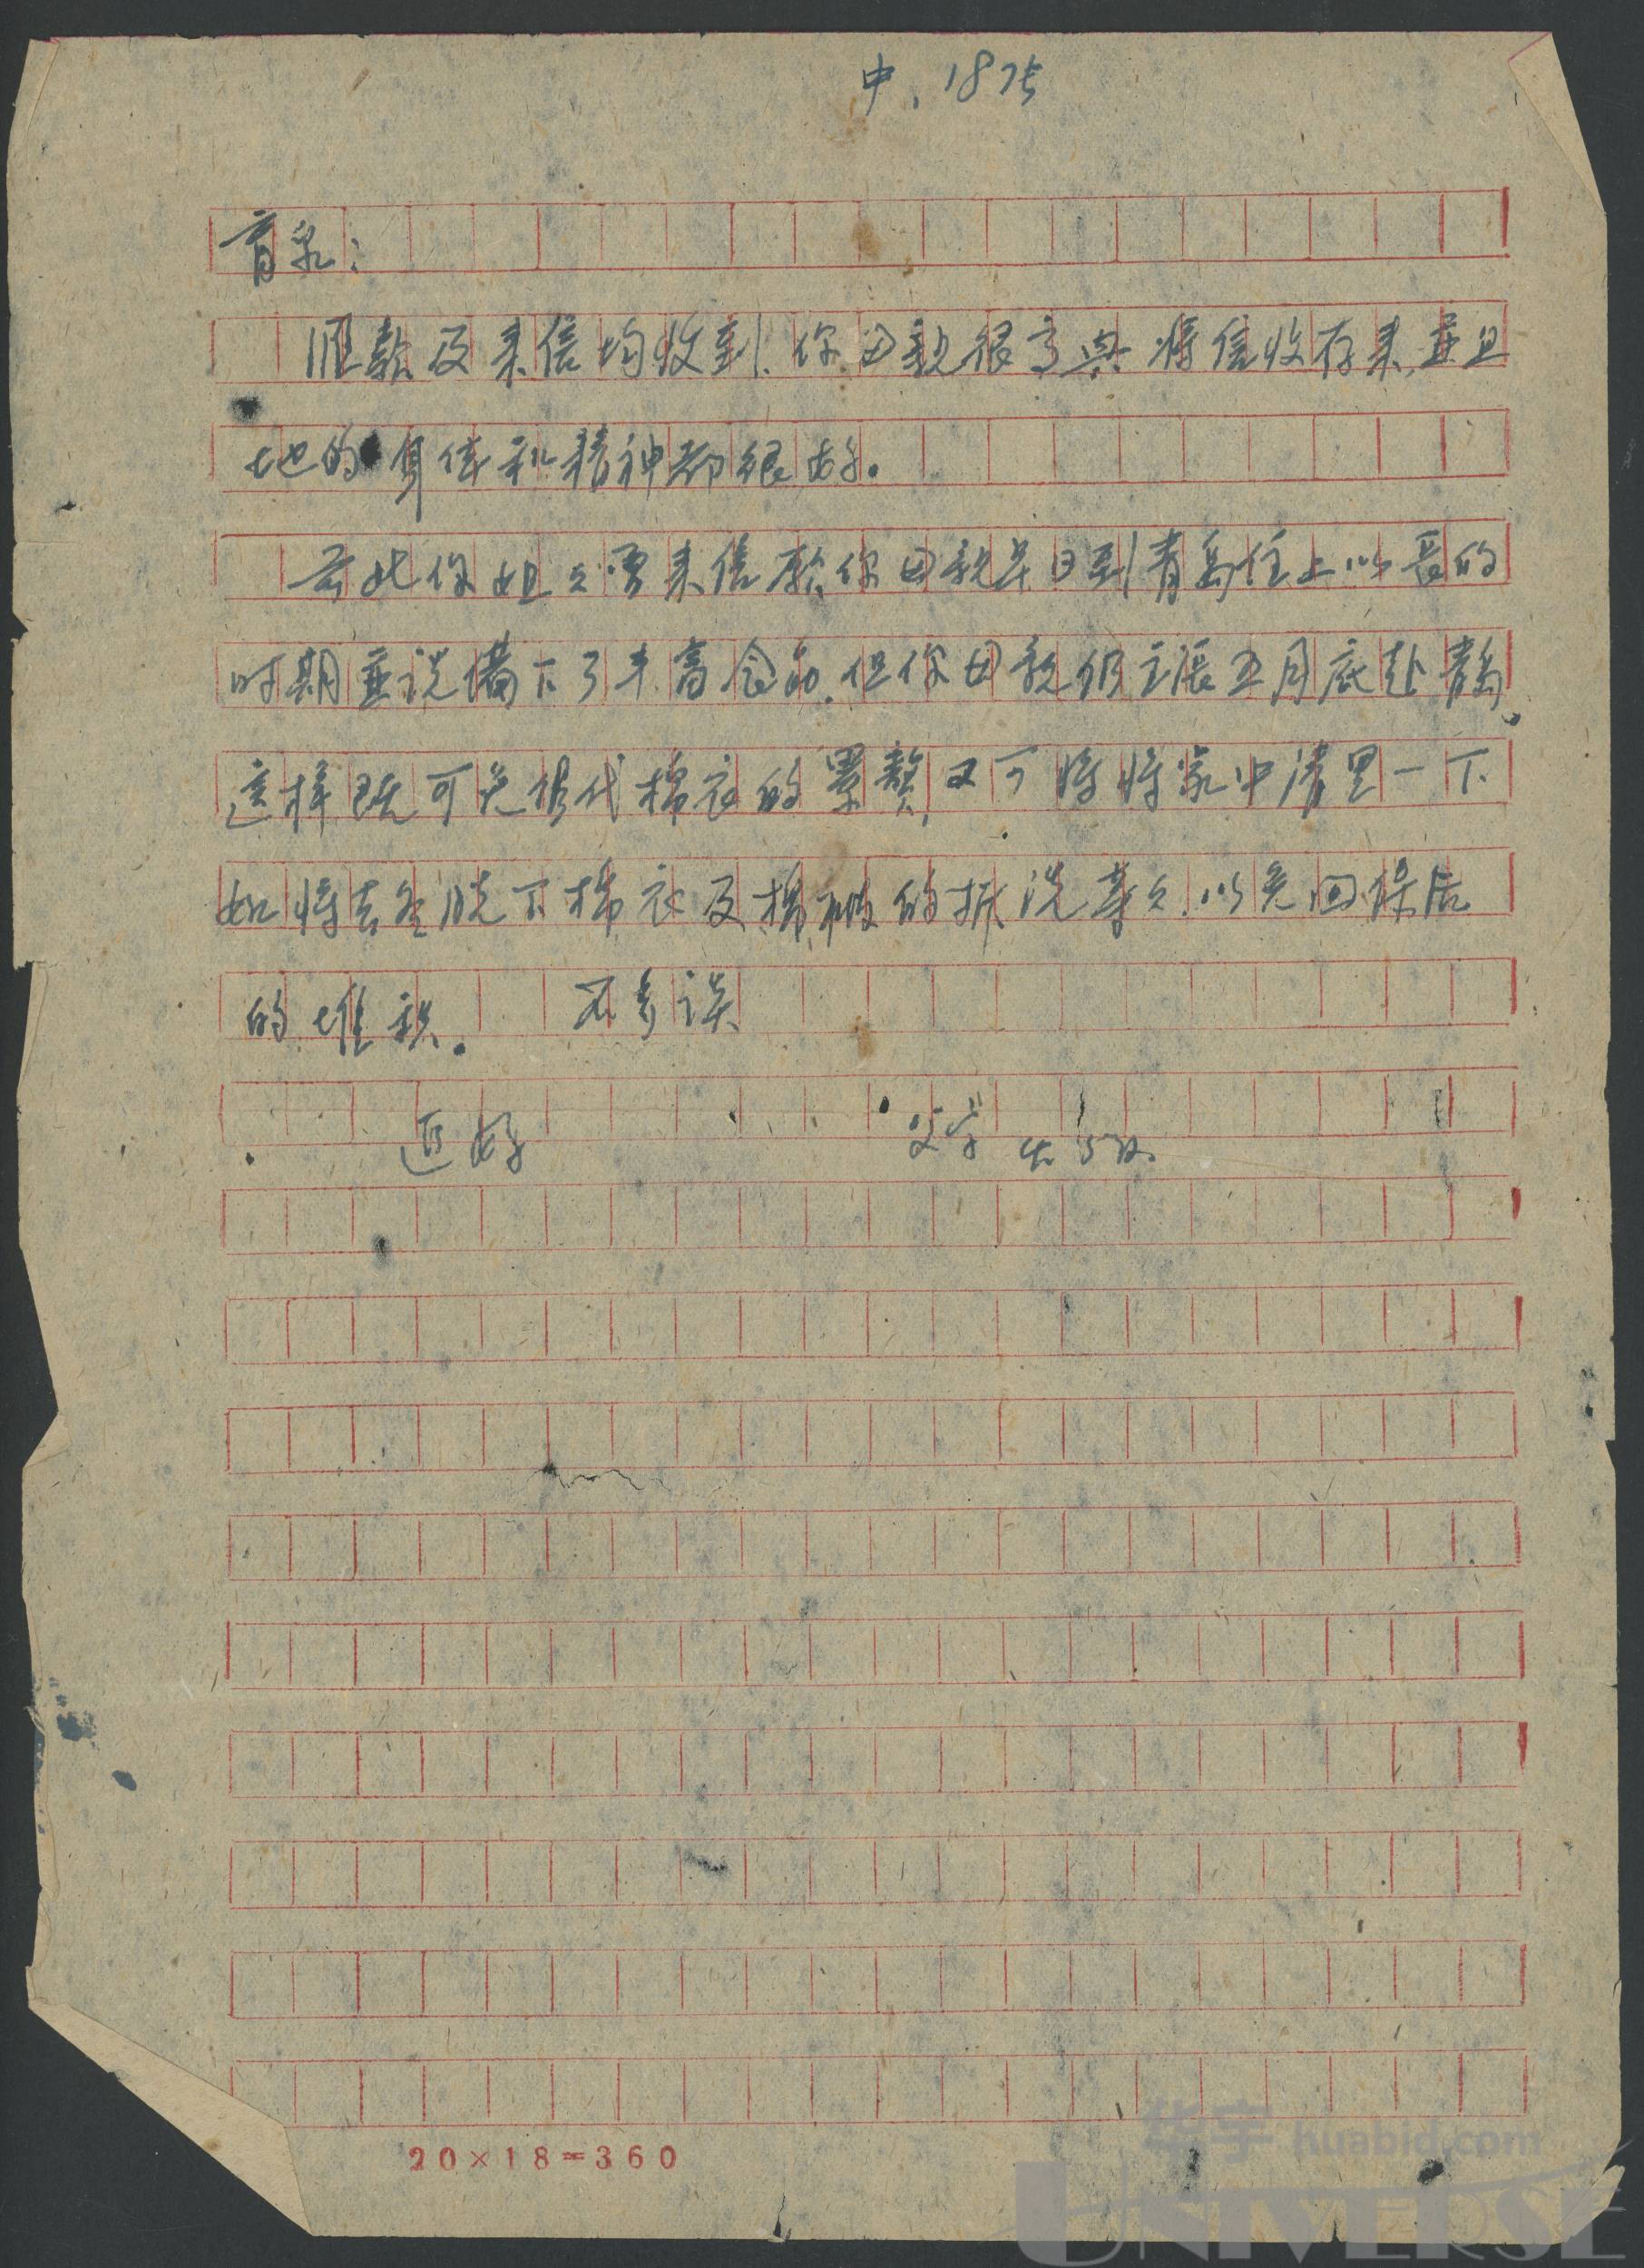 中.1875
育泉:
汇款及来信均收到.你母亲很高兴将信收存来,并且
她的身体和精神都很好.
去此你姐之要来信叫你母亲早日到青岛住上以长的
时期并说备下了丰富食品.但你母亲仍主张五月底赴青岛.
这样既可免携代棉衣的累赘,又可将将家中清里一下
如将去冬脱下棉衣及棉被的拆洗等之.以免回保后
的堆积. 不多谈
近好 父字
20×18=360
华宇 huabid.com
UNIVERSE